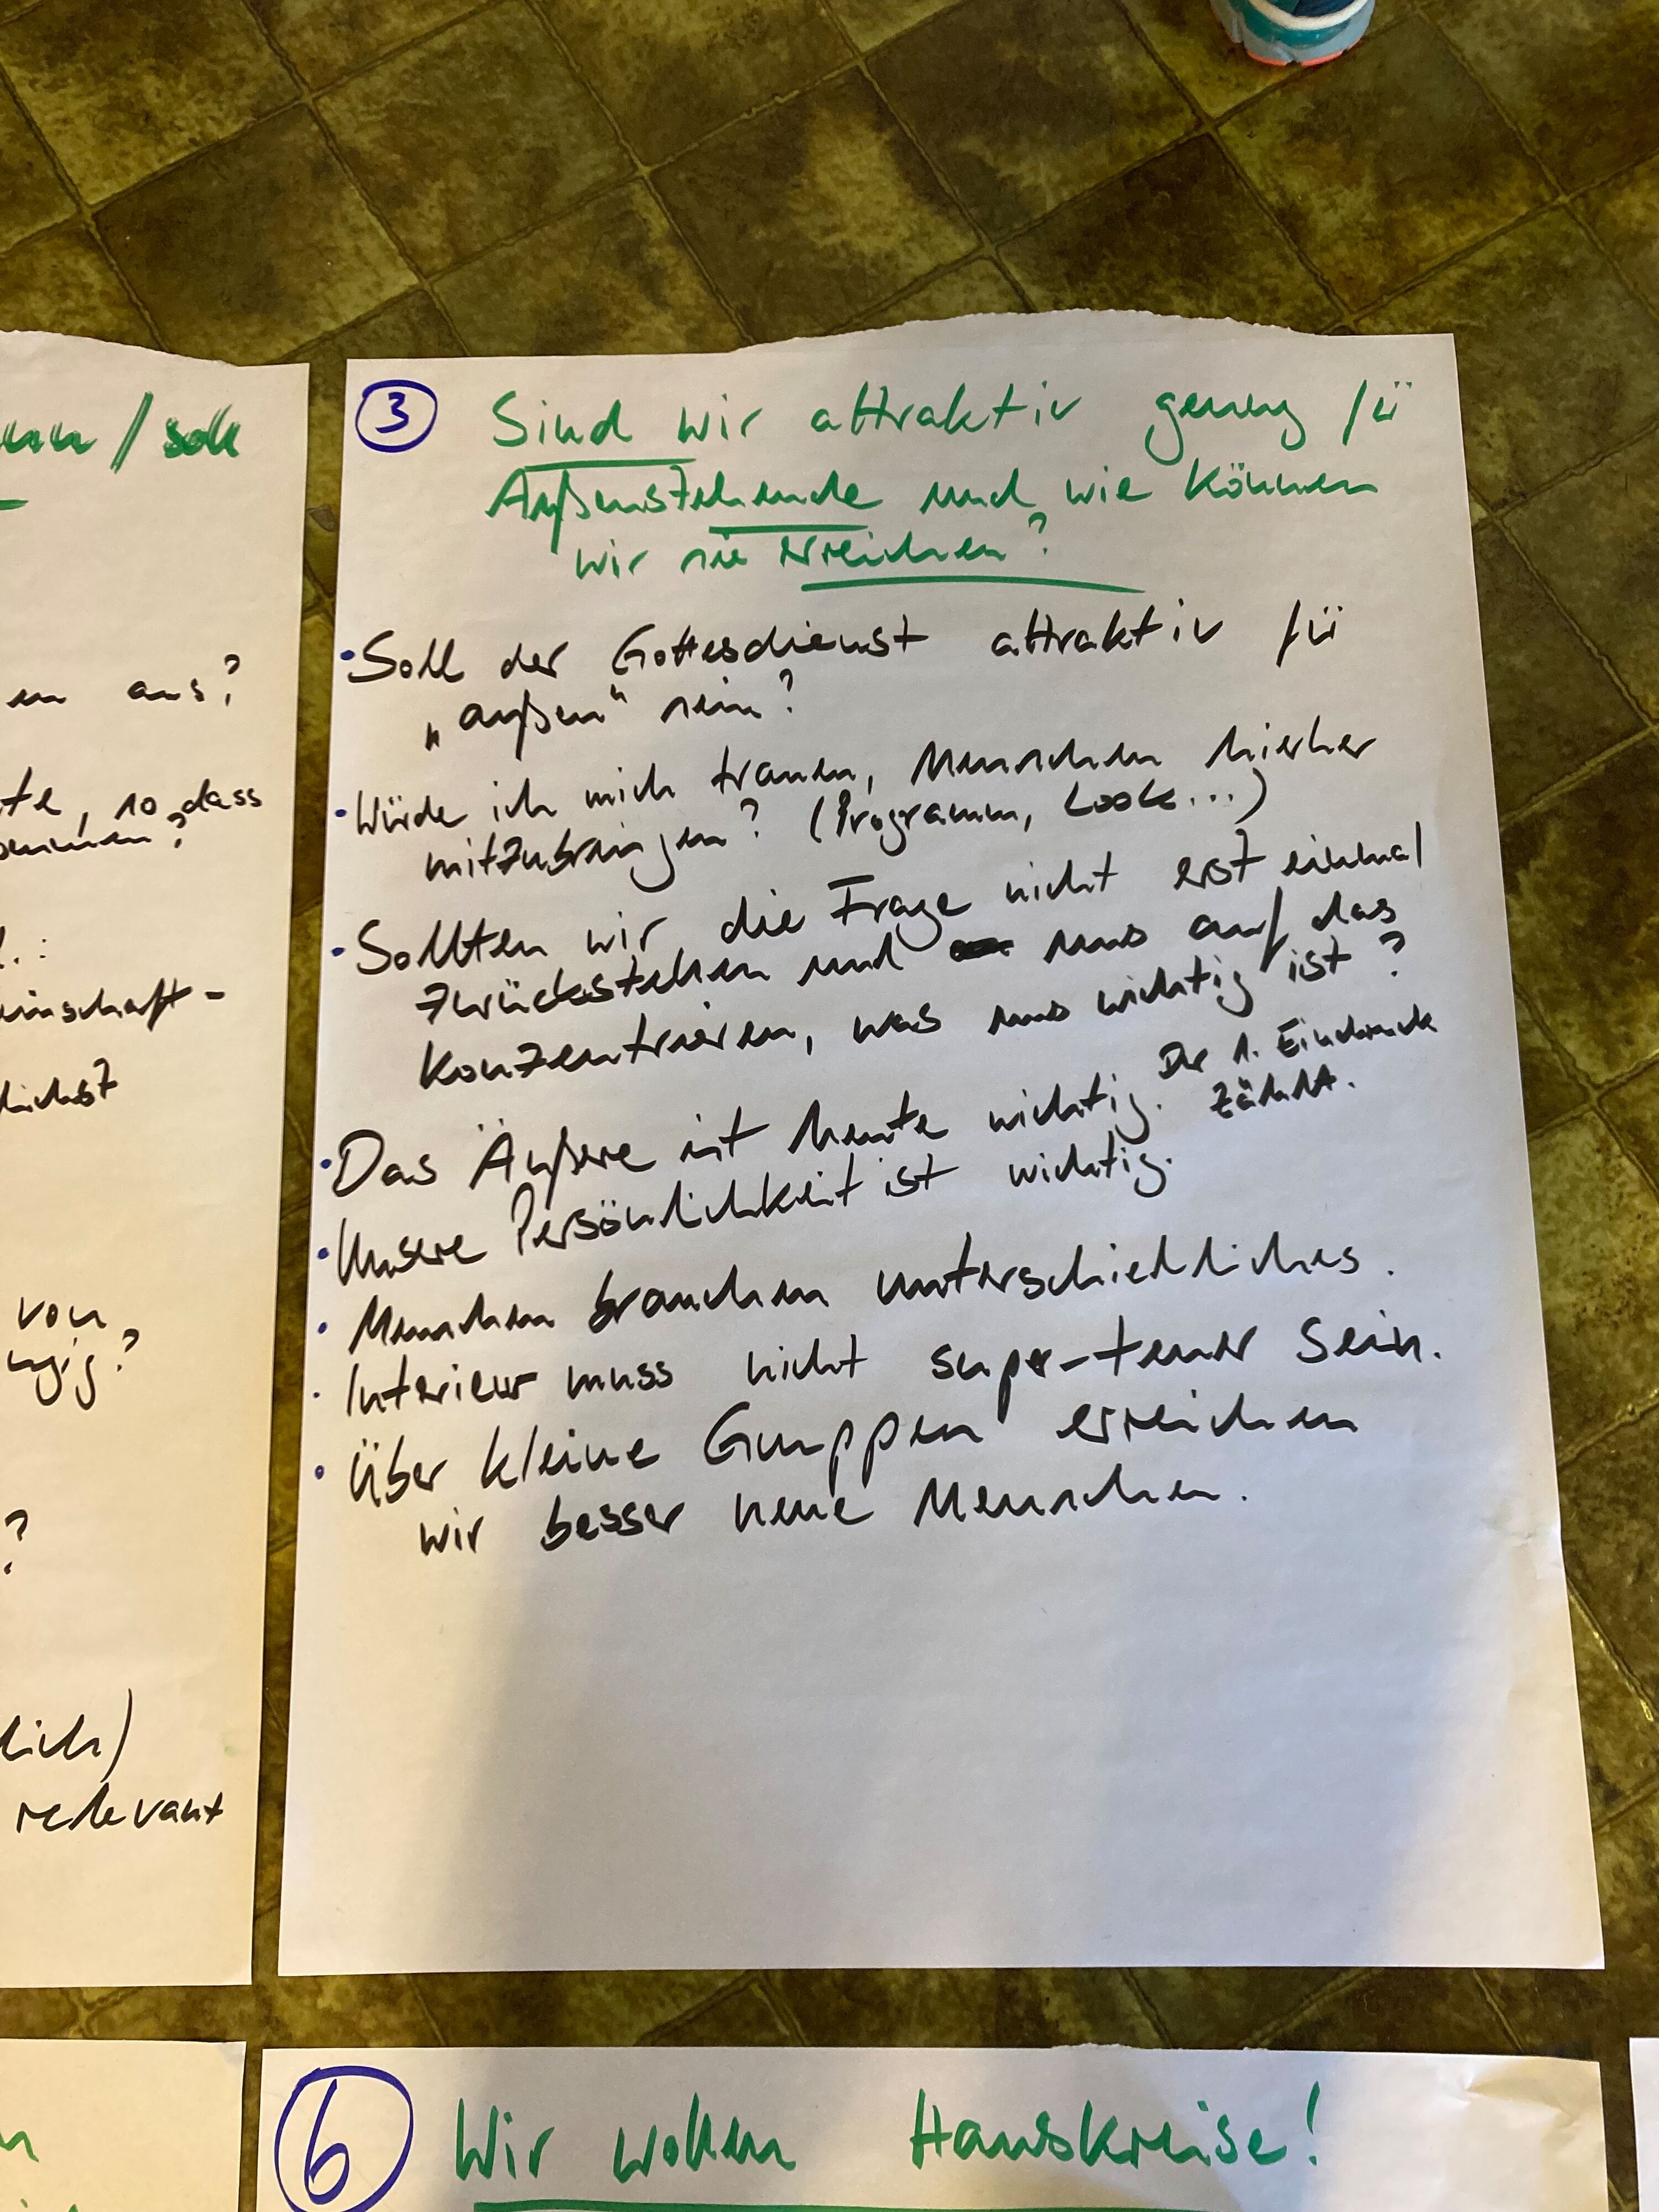 nn / soll
en aus?
te, so dass
ommen?
l.:
einschaft-
lichst
von
ngig?
?
lich)
relevant
3 Sind wir attraktiv genug fü
Außenstehende und wie können
wir sie erreichen?
• Soll der Gottesdienst attraktiv fü
„außen" sein?
• Würde ich mich trauen, Menschen hierher
mitzubringen? (Programm, Look...)
• Sollten wir die Frage nicht erst einmal
zurückstehen und uns auf das
konzentrieren, was uns wichtig ist?
• Das Äußere ist heute wichtig. Der 1. Eindruck
zählt.
• Unsere Persönlichkeit ist wichtig.
• Menschen brauchen unterschiedliches.
• Interieur muss nicht super-teuer sein.
• Über kleine Gruppen erreichen
wir besser neue Menschen.
6 Wir wollen Hauskreise!